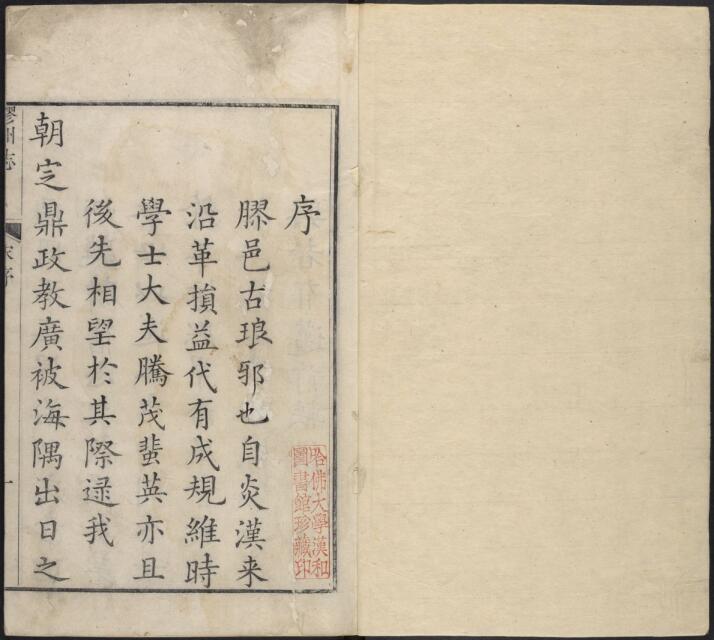 序
膠邑古琅邪也自炎漢来
沿革損益代有成規維時
學士大夫騰茂蜚英亦且
後先相望於其際逯我
朝定鼎政教廣被海隅出日之
膠州志
宋序
一
哈佛大學漢和
圖書館珍藏印